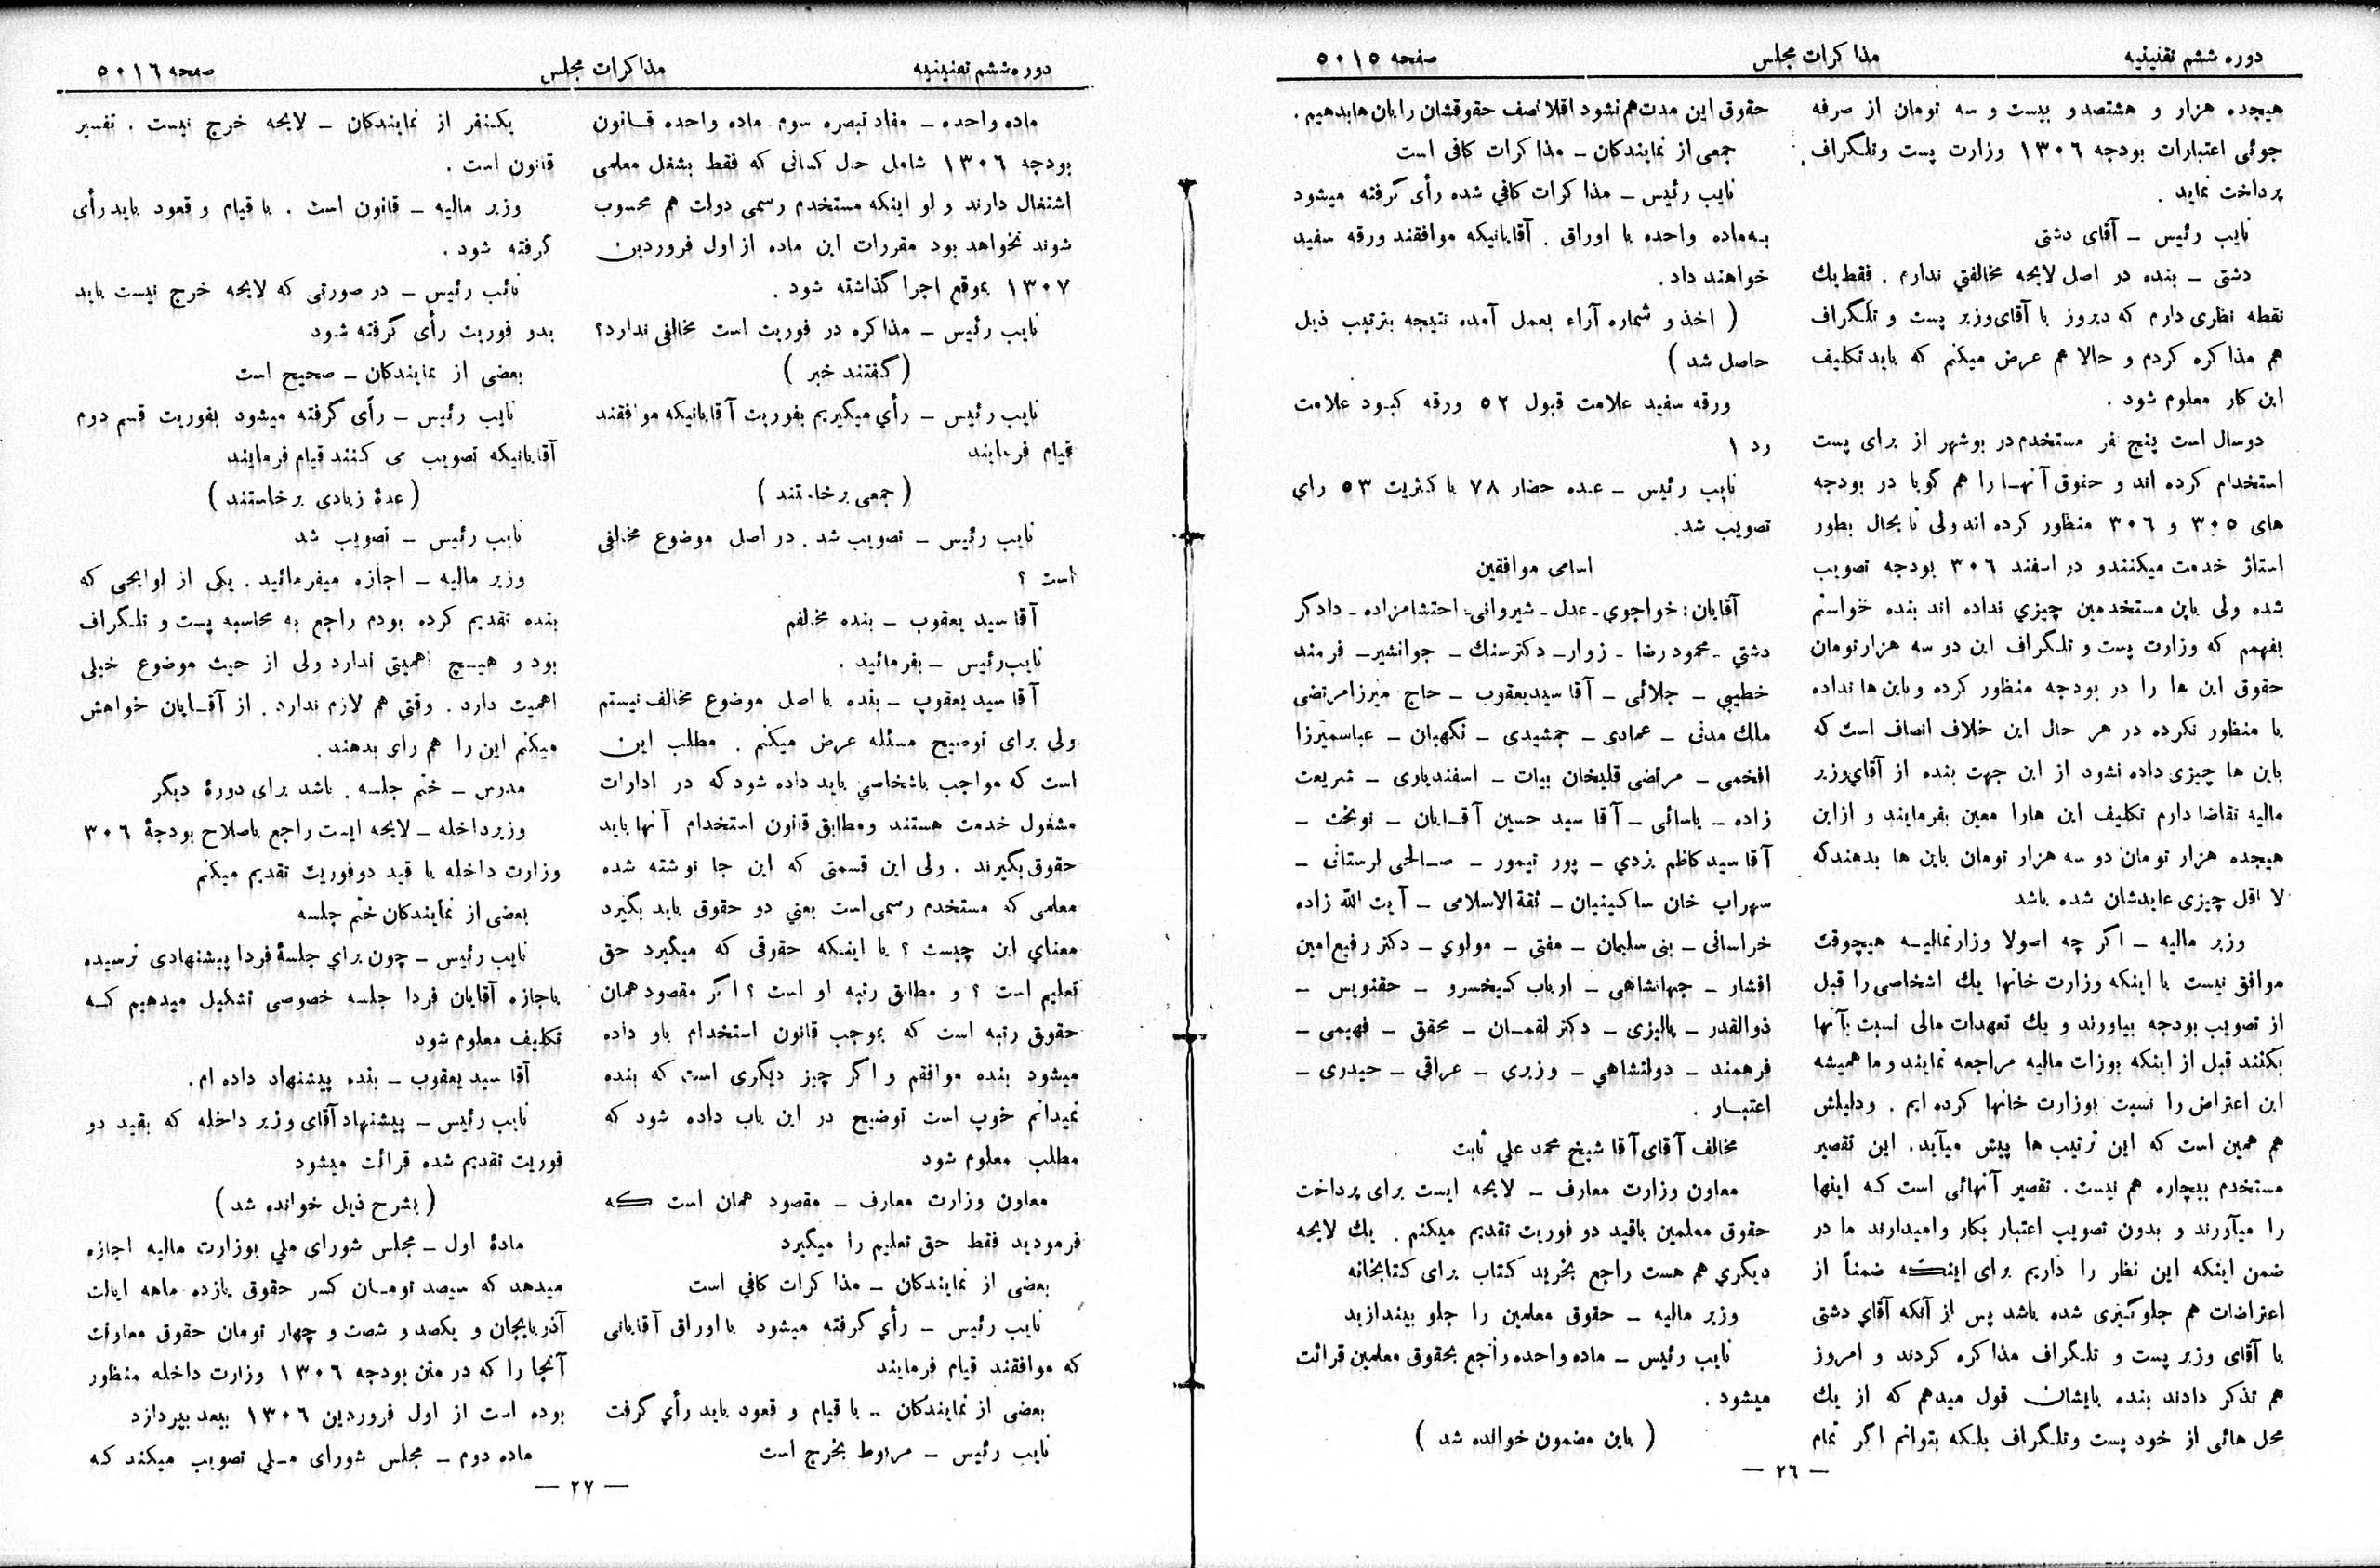 دوره ششم تقنینیه
مذاکرات مجلس
صفحه ٥٠١٥
هیجده هزار و هشتصدو بیست و سه تومان از صرفه
جوئی اعتبارات بودجه ١٣٠٦ وزارت پست وتلگراف
پرداخت نماید .
نایب رئیس – آقای دشتی
دشتی – بنده در اصل لایحه مخالفتي ندارم . فقط یك
نقطه نظری دارم که دیروز با آقای وزیر پست و تلگراف
هم مذاکره کردم و حالا هم عرض میکنم که باید تکلیف
این کار معلوم شود .
دوسال است پنج نفر مستخدم در بوشهر از برای پست
استخدام کرده اند و حقوق آنهـا را هم گویا در بودجه
های ٣٠٥ و ٣٠٦ منظور کرده اند ولی تا بحال بطور
استاژ خدمت میکنندو در اسفند ٣٠٦ بودجه تصویب
شده ولی باین مستخدمین چیزي نداده اند بنده خواستم
بفهمم که وزارت پست و تلگراف این دو سه هزار تومان
حقوق این ها را در بودجه منظور کرده وباین ها نداده
یا منظور نکرده در هر حال این خلاف انصاف است که
باین ها چیزی داده نشود از این جهت بنده از آقاي وزیر
مالیه تقاضا دارم تکلیف این هارا معین بفرمایند و ازاین
هیجده هزار تومان دو سه هزار تومان باین ها بدهند که
لا اقل چیزی عایدشان شده باشد
وزیر مالیه – اگر چه اصولا وزارتمالیـه هیچوقت
موافق نیست با اینکه وزارت خانها یك اشخاصی را قبل
از تصویب بودجه بیاورند و یك تعهدات مالی نسبت بآنها
بکنند قبل از اینکه بوزات مالیه مراجعه نمایند و ما همیشه
این اعتراض را نسبت بوزارت خانها کرده ایم . ودلیلش
هم همین است که این ترتیب ها پیش میآید. این تقصیر
مستخدم بیچاره هم نیست . تقصیر آنهائی است که اینها
را میآورند و بدون تصویب اعتبار بکار وامیدارند ما در
ضمن اینکه این نظر را داریم برای اینکه ضمناً از
اعتراضات هم جلوگیری شده باشد پس از آنکه آقاي دشتی
با آقای وزیر پست و تلگراف مذاکره کردند و امروز
هم تذکر دادند بنده بایشان قول میدهم که از یك
محل هائی از خود پست وتلگراف بلکه بتوانم اگر تمام
حقوق این مدت هم نشود اقلا نصف حقوقشان را بان ها بدهیم .
جمعی از نمایندکان – مذاکرات کافی است
نایب رئیس – مذاکرات کافي شده رأی گرفته میشود
بـه ماده واحده با اوراق . آقایانیکه موافقند ورقه سفید
خواهند داد .
( اخذ و شماره آراء بعمل آمده نتیجه بترتیب ذیل
حاصل شد )
ورقه سفید علامت قبول ٥٢ ورقه کبود علامت
رد ١
نایب رئیس – عده حضار ٧٨ با کثریت ٥٣ رای
تصویب شد.
اسامی موافقین
آقایان : خواجوي - عدل - شیروانی - احتشامزاده - دادگر
دشتي - محمود رضا - زوار – دکتر سنك – جوانشیر – فرمند
خطیبي – جلائی – آقا سیدیعقوب – حاج میرزا مرتضی
ملك مدنی – عمادی – جمشیدی – نگهبان – عباسمیرزا
افخمی – مرتضی قلیخان بیات – اسفندیاری – شریعت
زاده – یاسائی – آقا سید حسین آقـایان – نوبخت –
آقا سید کاظم یزدي – پور تیمور – صـالحی لرستانی –
سهراب خان ساکینیان – ثقة الاسلامی – آیت الله زاده
خراسانی – بنی سلیمان – مفتی – مولوي – دکتر رفیع امین
افشار – جهانشاهی – ارباب کیخسرو – حقنویس –
ذوالقدر – پالیزی – دکتر لقمـان – محقق – فهیمی –
فرهمند – دولتشاهي – وزیری – عراقی – حیدری –
اعتبـار .
مخالف آقای آقا شیخ محمد علي ثابت
معاون وزارت معارف – لایحه ایست برای پرداخت
حقوق معلمین باقید دو فوریت تقدیم میکنم . یك لایحه
دیگري هم هست راجع بخرید کتاب برای کتابخانه
وزیر مالیه – حقوق معلمین را جلو بیندازید
نایب رئیس – ماده واحده راجع بحقوق معلمین قرائت
میشود .
( باین مضمون خوانده شد )
— ٢٦ —
دوره ششم تقنینیه
مذاکرات مجلس
صفحه ٥٠١٦
ماده واحده – مفاد تبصره سوم ماده واحده قـانون
بودجه ١٣٠٦ شامل حال کسانی که فقط بشغل معلمی
اشتغال دارند و لو اینکه مستخدم رسمی دولت هم محسوب
شوند نخواهد بود مقررات این ماده از اول فروردین
١٣٠٧ بموقع اجرا گذاشته شود .
نایب رئیس – مذاکره در فوریت است مخالفی ندارد؟
( گفتند خیر )
نایب رئیس – رأي میگیریم بفوریت آقایانیکه موافقند
قیام فرمایند
( جمعی برخاستند )
نایب رئیس – تصویب شد . در اصل موضوع مخالفی
است ؟
آقا سید یعقوب – بنده مخالفم
نایب رئیس – بفرمائید .
آقا سید یعقوب – بنده با اصل موضوع مخالف نیستم
ولی برای توضیح مسئله عرض میکنم . مطلب این
است که مواجب باشخاصي باید داده شود که در ادارات
مشغول خدمت هستند ومطابق قانون استخدام آنها باید
حقوق بگیرند . ولی این قسمتی که این جا نوشته شده
معلمی که مستخدم رسمی است یعني دو حقوق باید بگیرد
معناي این چیست ؟ یا اینکه حقوقی که میگیرد حق
تعلیم است ؟ و مطابق رتبه او است ؟ اگر مقصود همان
حقوق رتبه است که بموجب قانون استخدام باو داده
میشود بنده موافقم و اگر چیز دیگری است که بنده
نمیدانم خوب است توضیح در این باب داده شود که
مطلب معلوم شود
معاون وزارت معارف – مقصود همان است که
فرمودید فقط حق تعلیم را میگیرد
بعضی از نمایندکان – مذاکرات کافي است
نایب رئیس – رأي گرفته میشود با اوراق آقایانی
که موافقند قیام فرمایند
بعضی از نمایندکان – با قیام و قعود باید رأي گرفت
نایب رئیس – مربوط بخرج است
یکنفر از نمایندکان – لایحه خرج نیست . تفسیر
قانون است .
وزیر مالیه – قانون است . با قیام و قعود باید رأی
گرفته شود .
نائب رئیس – در صورتی که لایحه خرج نیست باید
بدو فوریت رأی گرفته شود
بعضی از نمایندکان – صحیح است
نایب رئیس – رأی گرفته میشود بفوریت قسم دوم
آقایانیکه تصویب می کنند قیام فرمایند
( عدهٔ زیادی برخاستند )
نایب رئیس – تصویب شد
وزیر مالیه – اجازه میفرمائید . یکی از لوایحی که
بنده تقدیم کرده بودم راجع به محاسبه پست و تلگراف
بود و هیـچ اهمیتی ندارد ولی از حیث موضوع خیلی
اهمیت دارد . وقتي هم لازم ندارد . از آقـایان خواهش
میکنم این را هم رای بدهند .
مدرس – ختم جلسه . باشد برای دورهٔ دیگر
وزیر داخله – لایحه ایست راجع باصلاح بودجهٔ ٣٠٦
وزارت داخله با قید دو فوریت تقدیم میکنم
بعضی از نمایندکان ختم جلسه
نایب رئیس – چون براي جلسهٔ فردا پیشنهادی نرسیده
باجازه آقایان فردا جلسه خصوصی تشکیل میدهیم کـه
تکلیف معلوم شود
آقا سید یعقوب – بنده پیشنهاد داده ام .
نایب رئیس – پیشنهاد آقای وزیر داخله که بقید دو
فوریت تقدیم شده قرائت میشود
( بشرح ذیل خوانده شد )
مادهٔ اول – مجلس شورای ملي بوزارت مالیه اجازه
میدهد که سیصد تومـان کسر حقوق یازده ماهه ایالت
آذربایجان و یکصد و شصت و چهار تومان حقوق معاونت
آنجا را که در متن بودجه ١٣٠٦ وزارت داخله منظور
بوده است از اول فروردین ١٣٠٦ ببعد بپردازد
ماده دوم – مجلس شورای مـلي تصویب میکند که
— ٢٧ —